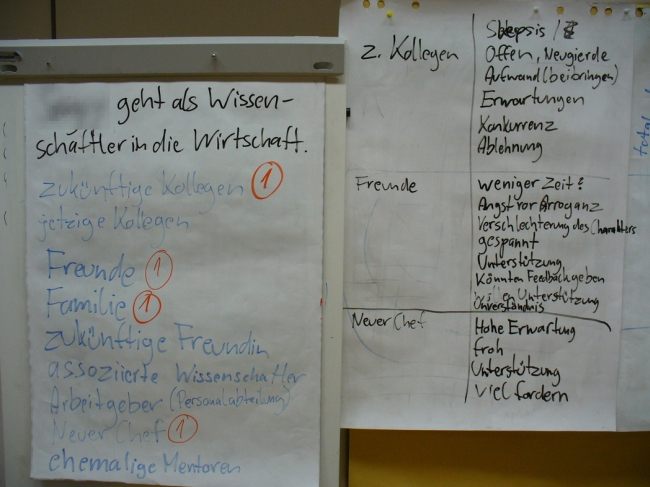 geht als Wissen-
schaftler in die Wirtschaft.
zukünftige Kollegen 1
jetzige Kollegen
Freunde 1
Familie 1
zukünftige Freundin
assoziierte Wissenschaftler
Arbeitgeber (Personalabteilung)
Neuer Chef 1
ehemalige Mentoren
z. Kollegen
Skepsis /
Offen, Neugierde
Aufwand (beibringen)
Erwartungen
Konkurrenz
Ablehnung
Freunde
weniger Zeit?
Angst vor Arroganz
Verschlechterung des Charakters
gespannt
Unterstützung
Könnten Feedback geben
wollen Unterstützung
Unverständnis
Neuer Chef
Hohe Erwartung
froh
Unterstützung
Viel fordern
total